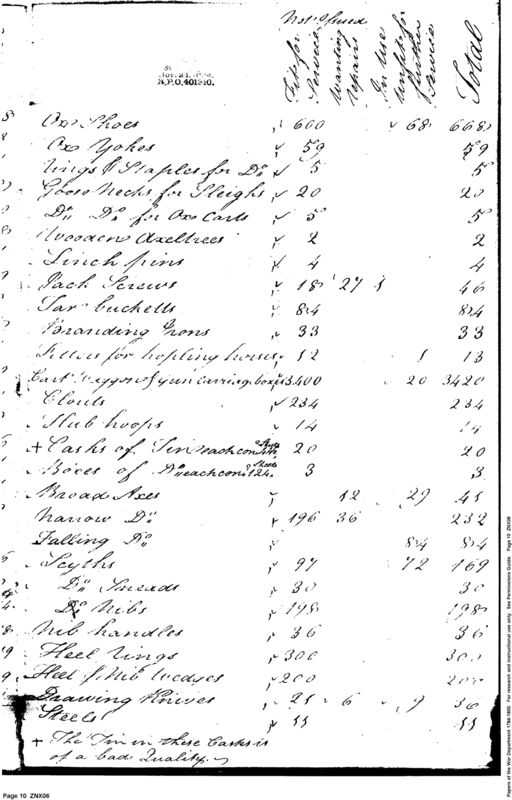 Not Issued
Fit for Service
Wanting repairs
In Use
Unfit for further Service
Total
Ox Shoes 660 68 668
Ox Yokes 59 59
Rings & Staples for Do 5 5
Goose Necks for Sleighs 20 20
Do Do for Ox Carts 5 5
Wooden Axeltrees 2 2
Linch pins 4 4
Jack Screws 18 27 1 46
Tar bucketts 84 84
Branding Irons 33 33
for hopling horses 12 1 13
Cart Waggon & gun carriag boxes 3400 20 3420
Clouts 234 234
Hub hoops 14 14
+ Casks of Tin each con 20 20
Boxes of Do each con 124 Sheets 3 3
Broad Axes 12 29 41
Narrow Do 196 36 232
Falling Do 84 84
Scyths 97 72 169
Do Sneads 30 30
Do Nibs 198 198
Nib handles 36 36
Heel Rings 300 300
Heel & Nib Wedges 200 200
Drawing Knives 21 6 9 36
Steels 11 11
+ The Tin in these Casks is
of a bad Quality.
Page 10 ZNX06
Papers of the War Department 1784-1800. For research and instructional use only. See Permissions Guide. Page 10 ZNX06